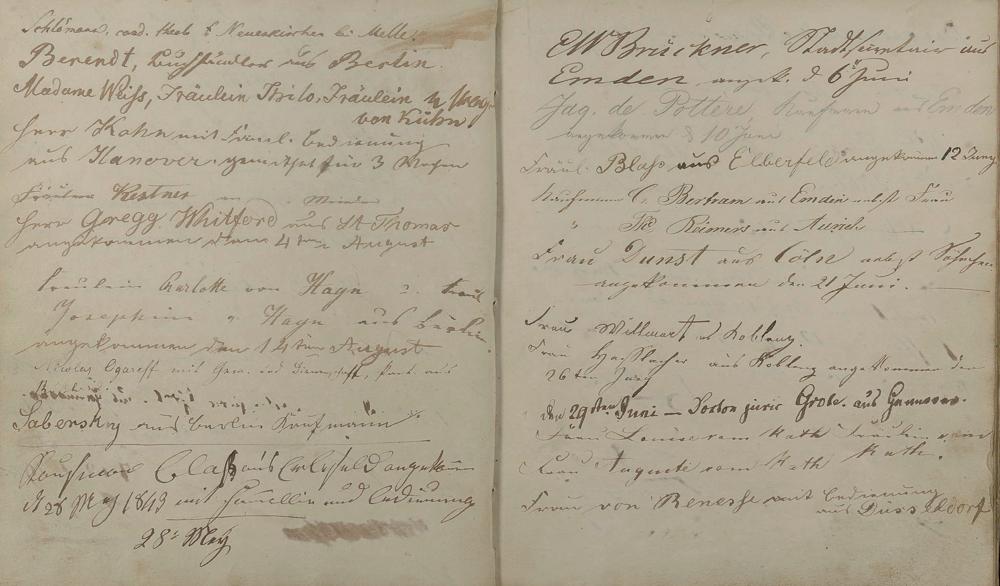 Schlömann, cand. theol. f. Neuenkirchen bei Melle.
Berendt, Buchhändler aus Berlin.
Madame Weiss, Fräulein Thilo, Fräulein
von Kühn
Herr Kohn mit Faml. bedienung
aus Hanover. gemithet für 3 Wochen
Fräulein Kestner
Herr Gregg Whitford aus St Thomas
angekommen den 4ten August
Fräulein Charlotte von Hagn
Josephine v Hagn aus Berlin.
angekommen den 14ten August
Nicolas Ogareff mit Gem. und Dienerschaft,
Sabersky aus Berlin Kaufmann
Kaufmann Blass aus Elberfeld angekom
d 28 May 1843 mit Famillie und bedienung
28t May
CW Brückner, Stadtsecretair aus
Emden, angek. d 6t Juni
Jaq. de Pottere, Kaufmann aus Emden
angekommen d 10 Juni
Fräul. Blass aus Elberfeld angekommen 12 Juny
Kaufmann C. Bertram aus Emden nebst Frau
" Reimers aus Aurich
Frau Dunst aus Cöln nebst Söhnchen
angekommen den 21 Juni.
Frau Willmart Koblenz.
Frau Hasslacher aus Koblenz angekommen den
26ten Juny
den 29sten Juni — Doctor juris Grote. aus Hannover.
Frau Louise vom Rath Fräulein
Frau Auguste vom Rath Rath.
Frau von Renesse mit bedienung
aus Düsseldorf